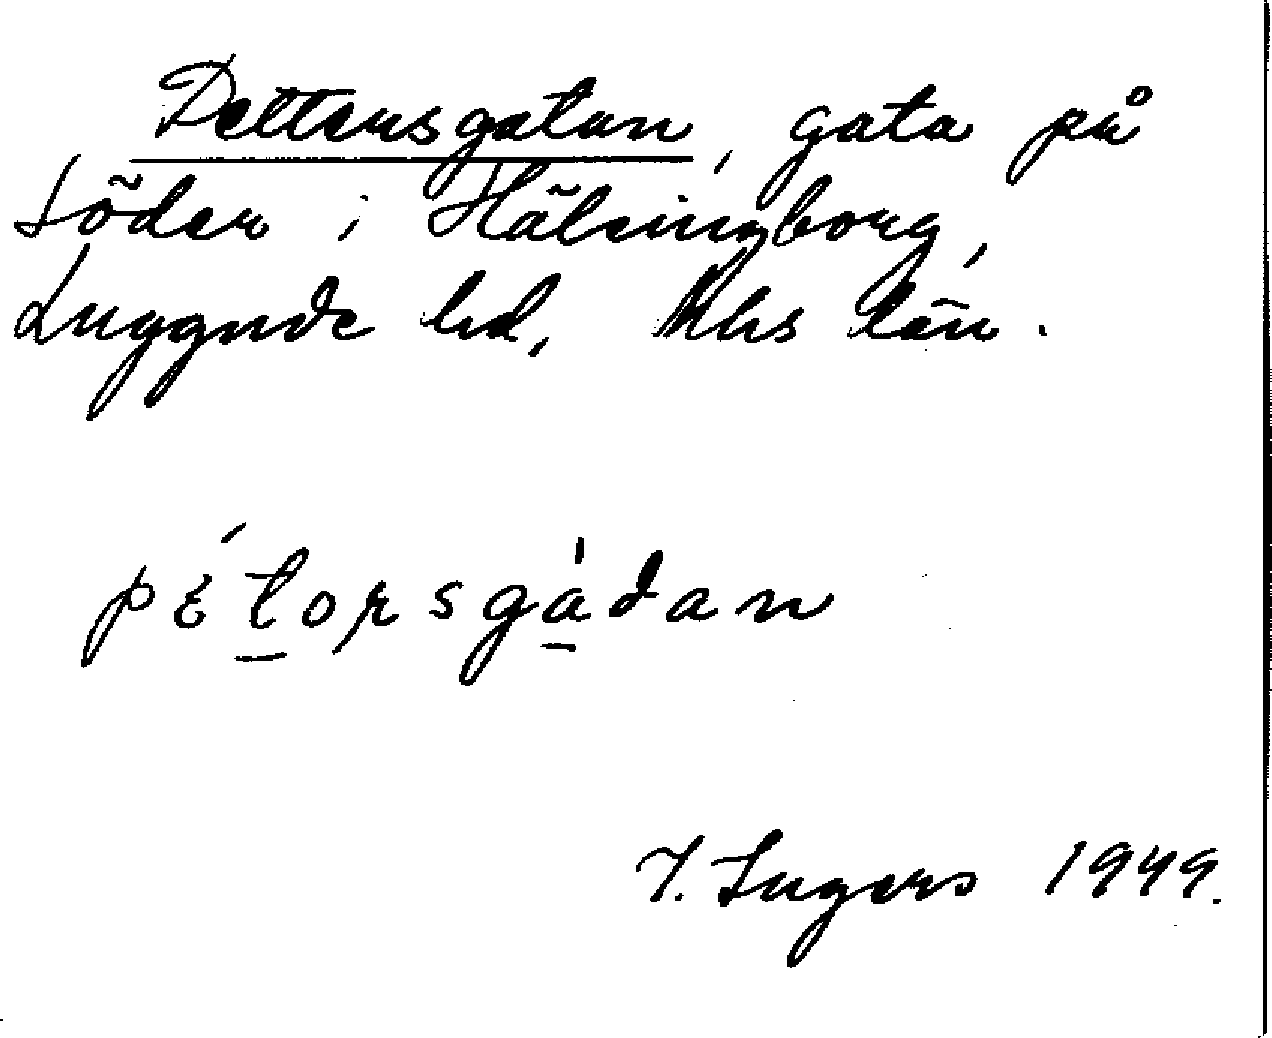 Pettersgatan, gata på
Söder i Hälsingborg,
Luggude hd, Mhs län.
pɛ́torsgàdan
I. Ingers 1949.